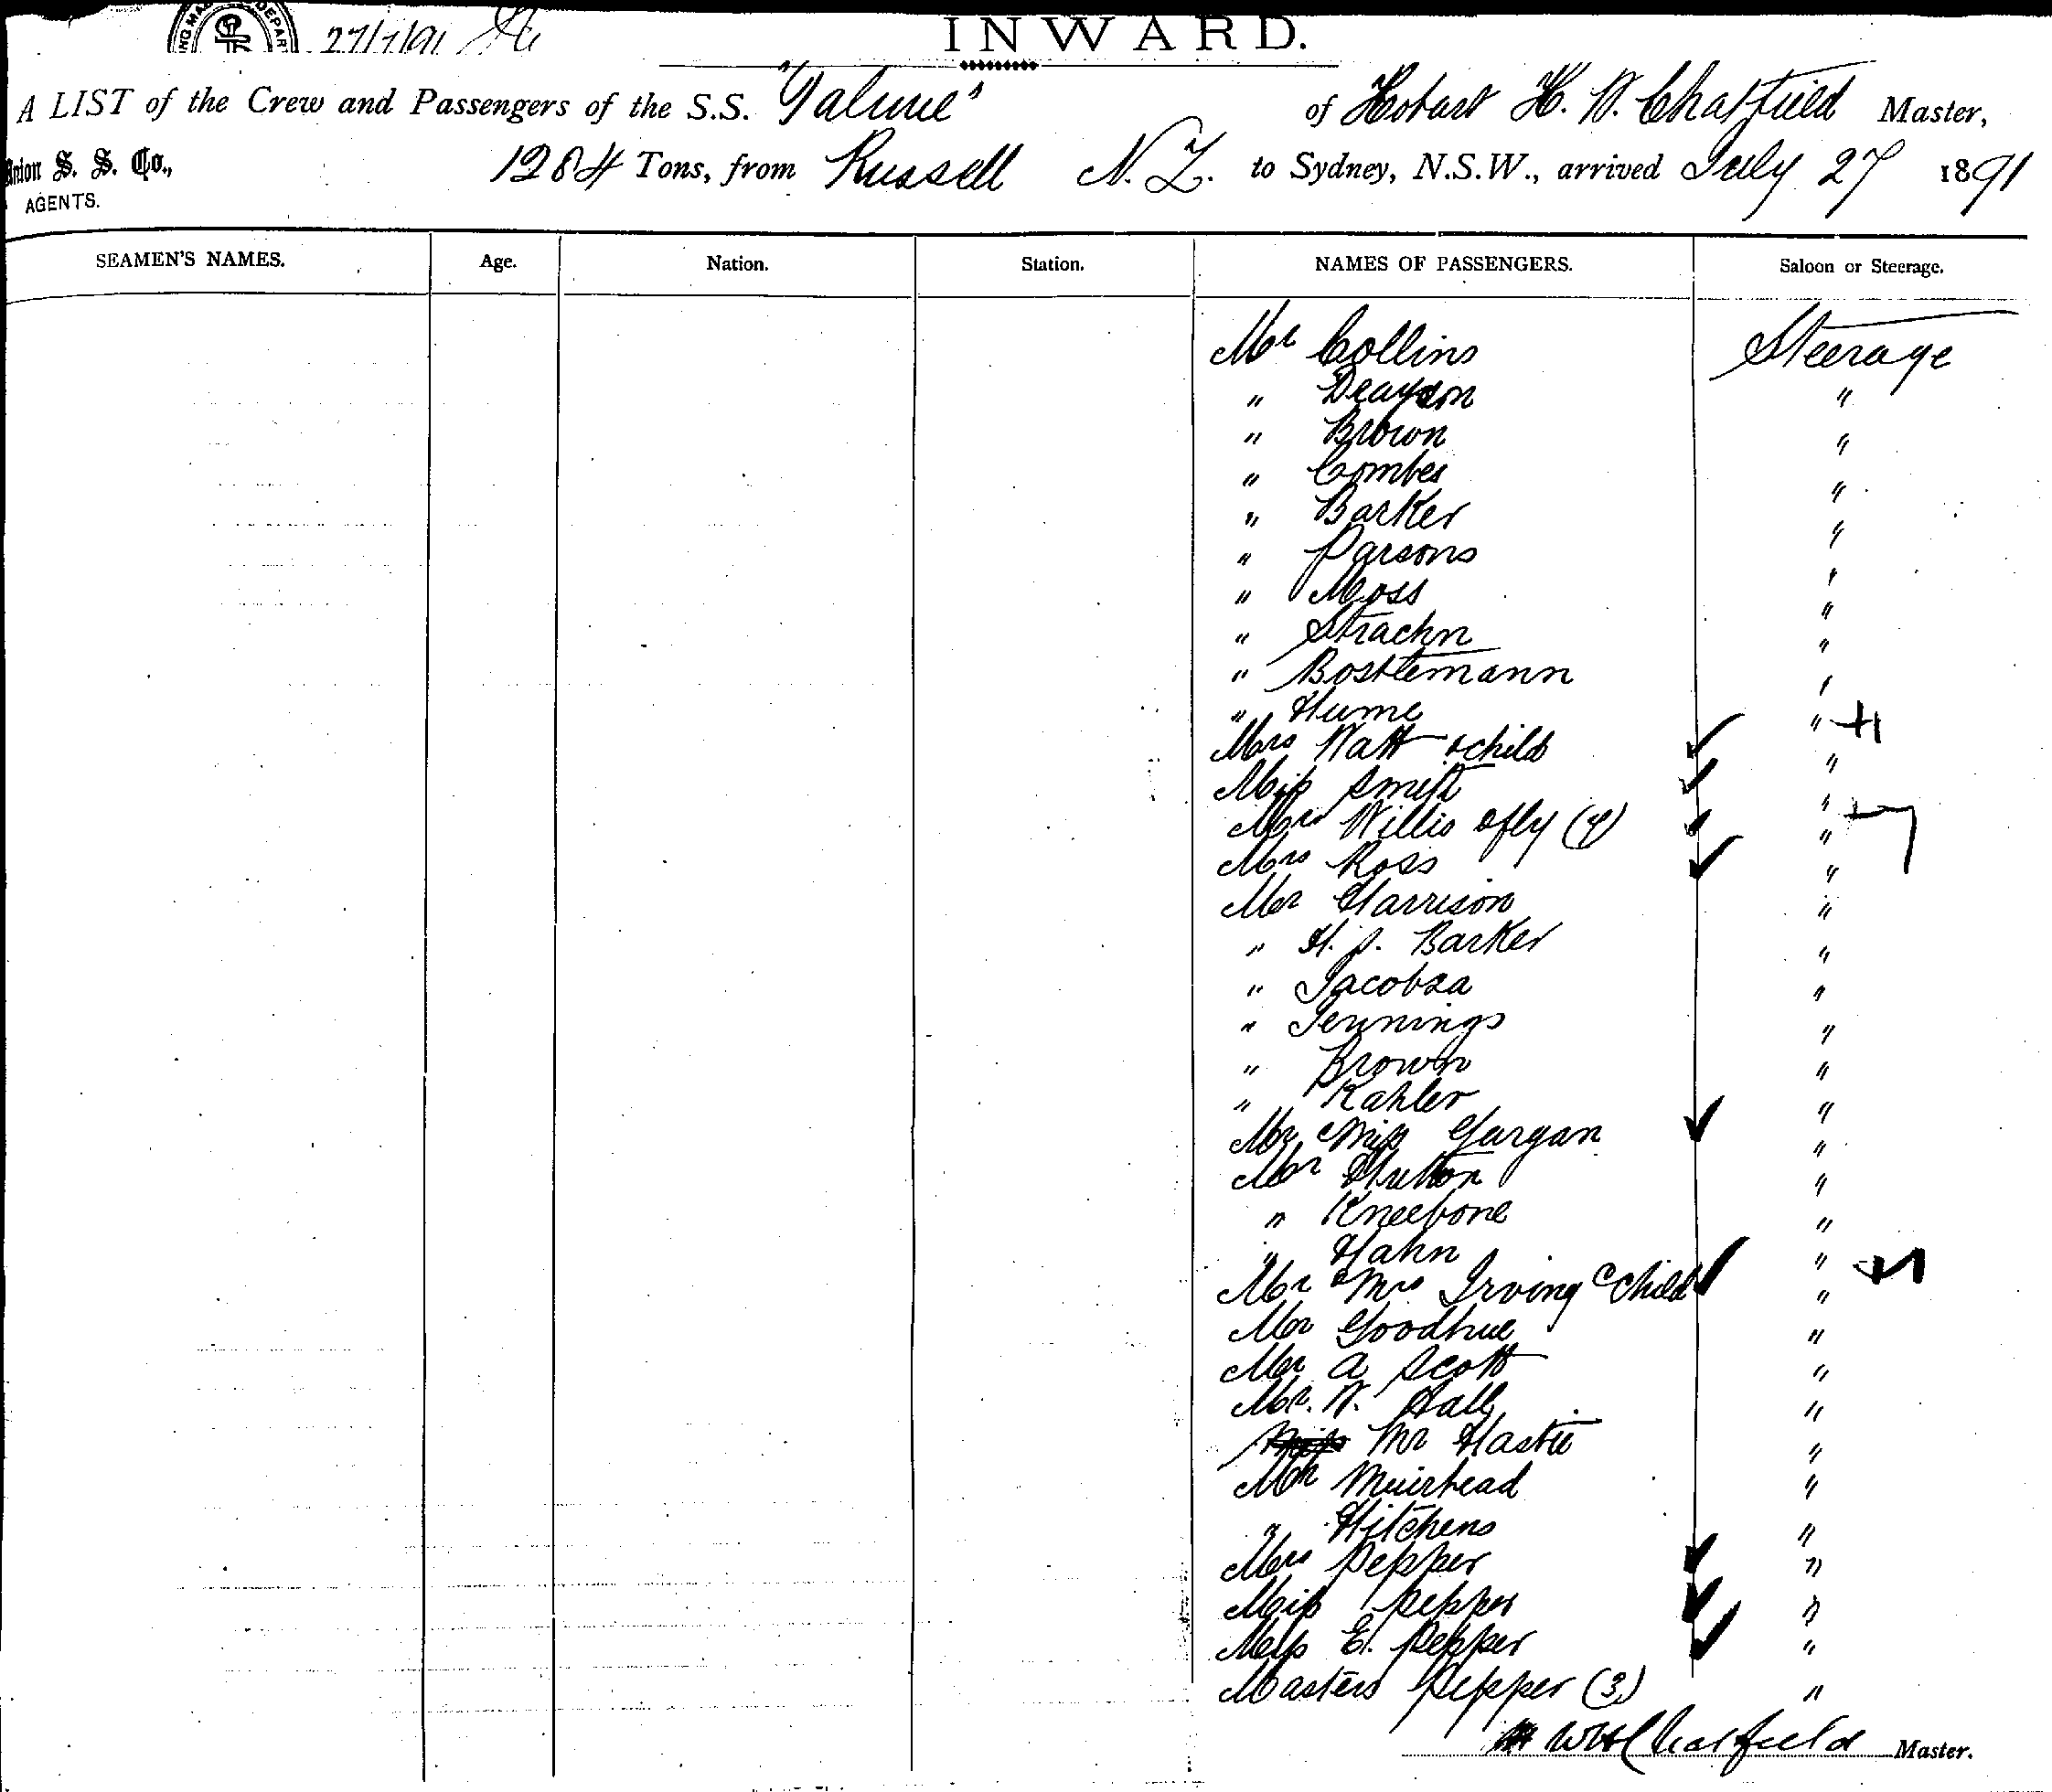 27/7/91
INWARD.
A LIST of the Crew and Passengers of the S.S. "Talune" of Hobart H. W. Chatfield Master,
Union S. S. Co., 1284 Tons, from Russell N.Z. to Sydney, N.S.W., arrived July 27 1891
AGENTS.
SEAMEN'S NAMES. Age. Nation. Station. NAMES OF PASSENGERS. Saloon or Steerage.
Mr Collins Steerage
" "
" Brown "
" Combes "
" Barker "
" Parsons "
" Moss "
" Strachn "
" Bosttemann "
" Hume " +1
Mrs Watt & child "
Miss Smith "
Mrs Willis & fly (4) " +7
Mrs Ross "
Mr Harrison "
" H. S. Barker "
" Jacobsa "
" Jennings "
" Brown "
" Kahler "
Mr & Miss Gargan "
Mr Hutton "
" Kneebone "
" Hahn "
Mr & Mrs Irving & Child "
Mr Goodhue "
Mr A Scott "
Mr. W. Hall "
Mr Hastie "
Mr Muirhead "
" Hitchens "
Mrs Pepper "
Miss Pepper "
Miss E. Pepper "
Masters Pepper (3) "
Chatfield Master.